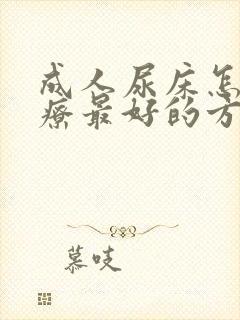 成人尿床怎
疗最好的方
慕吱